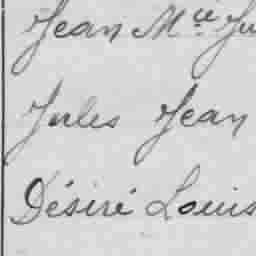 Jean Mie Ju
Jules Jean
Désiré Louis